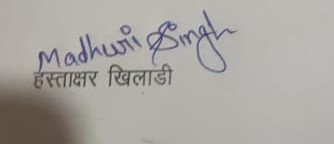 Madhuri Singh
हस्ताक्षर खिलाडी